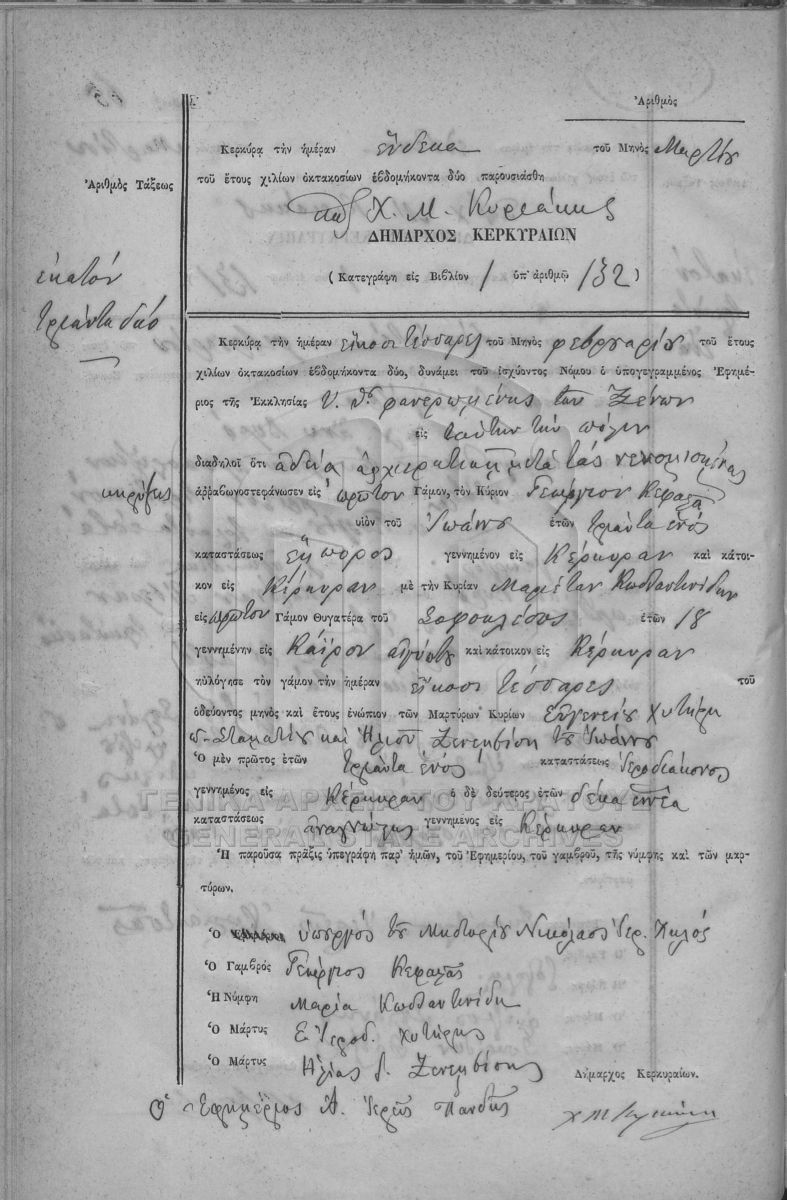 Ἀριθμὸς
Κερκύρᾳ τὴν ἡμέραν ἕνδεκα τοῦ Μηνὸς Μαρτίου
Ἀριθμὸς Τάξεως
τοῦ ἔτους χιλίων ὀκτακοσίων ἑβδομήκοντα δύο παρουσιάσθη
Χ. Μ. Κυριάκης
ΔΗΜΑΡΧΟΣ ΚΕΡΚΥΡΑΙΩΝ
(Κατεγράφη εἰς Βιβλίον 1 ὑπ' ἀριθμῷ 132)
ἑκατὸν
τριάντα δύο
Κερκύρᾳ τὴν ἡμέραν εἴκοσι τέσσαρες τοῦ Μηνὸς φεβρουαρίου τοῦ ἔτους
χιλίων ὀκτακοσίων ἑβδομήκοντα δύο, δυνάμει τοῦ ἰσχύοντος Νόμου ὁ ὑπογεγραμμένος Ἐφημέ-
ριος τῆς Ἐκκλησίας Υ. Θ. φανερωμένης των Ξένων
εἰς ταύτην την πόλιν
διαδηλοῖ ὅτι αδεία αρχιερατικη μετά τάς νενομισμένας
κηρύξεις
ἀρραβωνοστεφάνωσεν εἰς πρῶτον Γάμον, τὸν Κύριον Γεώργιον Κεφαλᾶ
υἱὸν τοῦ Ἰωάννου ἐτῶν τριάντα ἑνός
καταστάσεως εὔπορος γεννημένον εἰς Κέρκυραν καὶ κάτοι-
κον εἰς Κέρκυραν μὲ τὴν Κυρίαν Μαριέταν Κωσταντινίδην
εἰς πρῶτον Γάμον Θυγατέρα τοῦ Σοφοκλέους ἐτῶν 18
γεννημένην εἰς Κάϊρον αἰγύπτου καὶ κάτοικον εἰς Κέρκυραν
ηὐλόγησε τὸν γάμον τὴν ἡμέραν εἴκοσι τέσσαρες τοῦ
ὁδεύοντος μηνὸς καὶ ἔτους ἐνώπιον τῶν Μαρτύρων Κυρίων Εὐγενείου Χυτήρη
Σταματίου καὶ Ηλιοῦ Ξενεμβίση τοῦ Ἰωάννου
Ὁ μὲν πρῶτος ἐτῶν τριάντα ἑνός καταστάσεως Ἱεροδιάκονος
γεννημένος εἰς Κέρκυραν ὁ δὲ δεύτερος ἐτῶν δέκα ἐννέα
ΓΕΝΙΚΑ ΑΡΧΕΙΑ ΤΟΥ ΚΡΑΤΟΥΣ
καταστάσεως ἀναγνώστης γεννημένος εἰς Κέρκυραν
GENERAL STATE ARCHIVES
Ἡ παροῦσα πρᾶξις ὑπεγράφη παρ' ἡμῶν, τοῦ Ἐφημερίου, τοῦ γαμβροῦ, τῆς νύμφης καὶ τῶν μαρ-
τύρων.
Ὁ ὑπουργός τοῦ Μυστηρίου Νικόλαος Ιερ.
Ὁ Γαμβρός Γεώργιος Κεφαλᾶς
Ἡ Νύμφη Μαρία Κωσταντινίδη
Ὁ Μάρτυς Ε. Ἱεροδ. Χυτήρης
Ὁ Μάρτυς Ηλίας Ι. Ξενεμβίσης
Δήμαρχος Κερκυραίων.
Ὁ Εφημέριος Α. Ἱερεὺς Πανδῆς
Χ Μ Κυριάκης